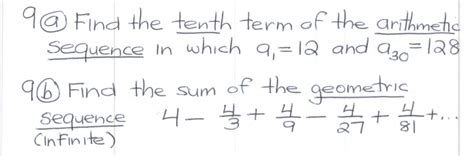 9ⓐ Find the tenth term of the arithmetic
sequence in which a₁=12 and a₃₀=128
9ⓑ Find the sum of the geometric
sequence 4 - 4/3 + 4/9 - 4/27 + 4/81 + ...
(infinite)